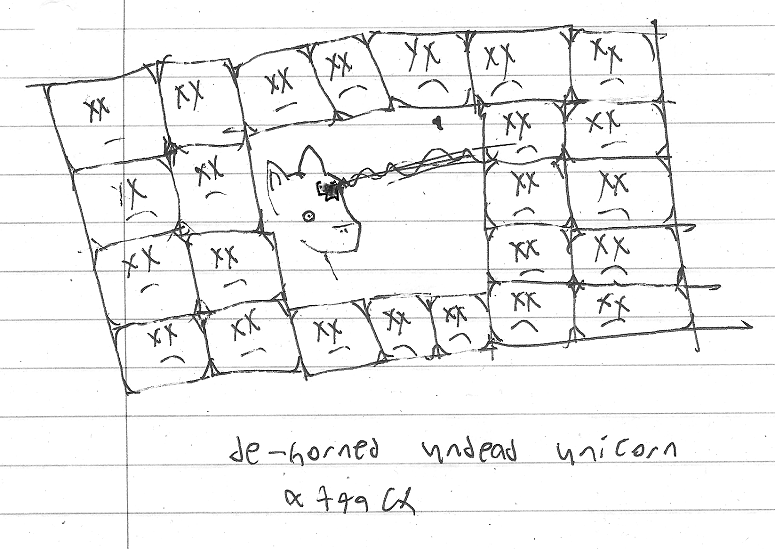 de-horned undead unicorn
attack